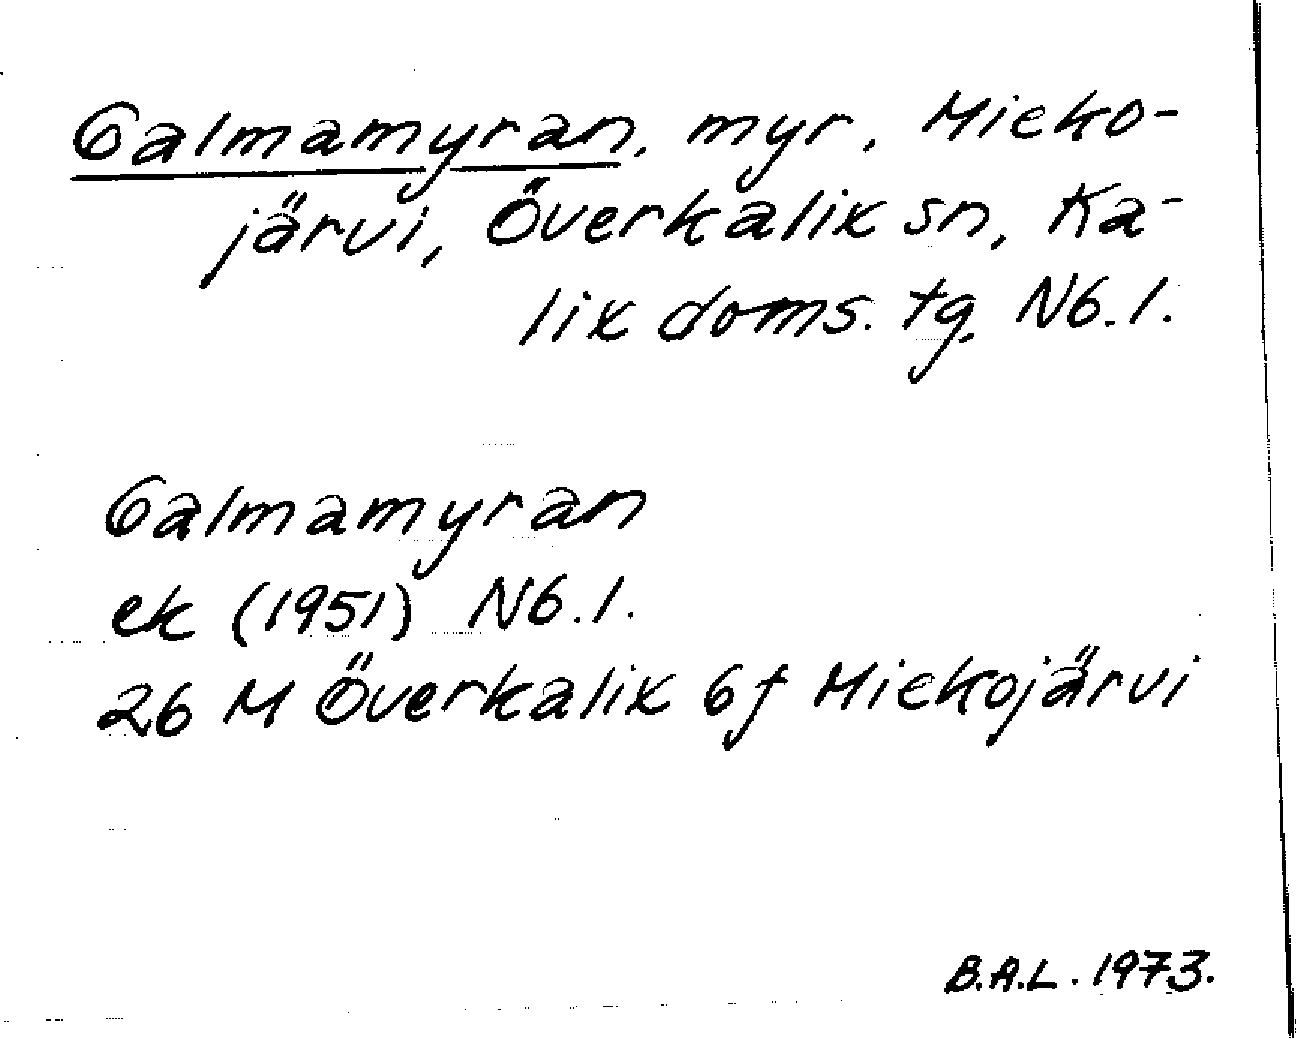 Galmamyran, myr, Mieko-
järvi, Överkalix sn, Ka-
lix doms. tg. Nb. l.
Galmamyran
ek (1951) Nb. l.
26 M Överkalix 6f Miekojärvi
B.A.L. 1973.